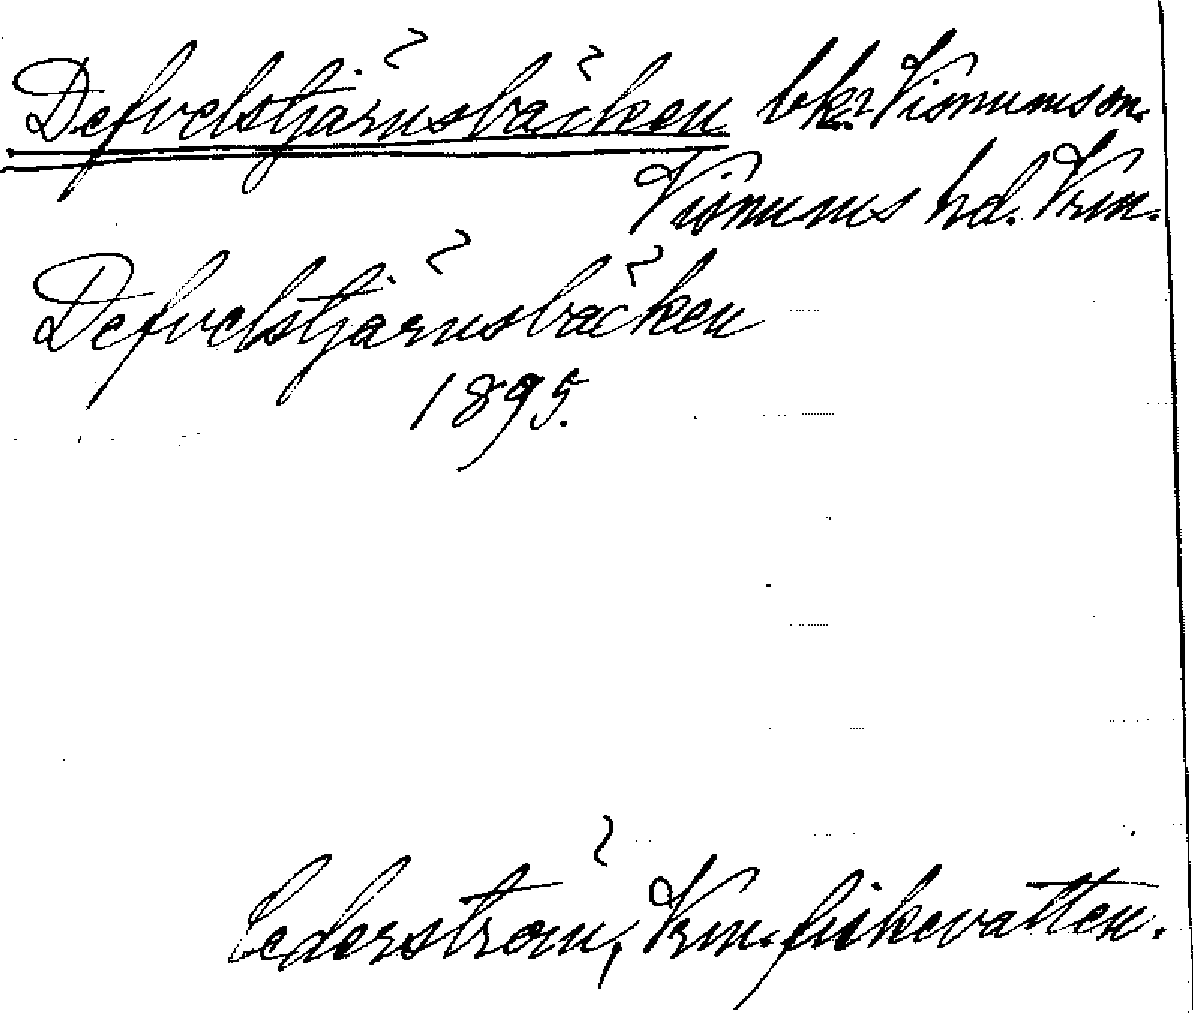 Defvelstjärnsbäcken bkr. Visnums sn.
Visnums hd. Vrm.
Defvelstjärnsbäcken
1895.
Cederström, Vrm. fiskevatten.